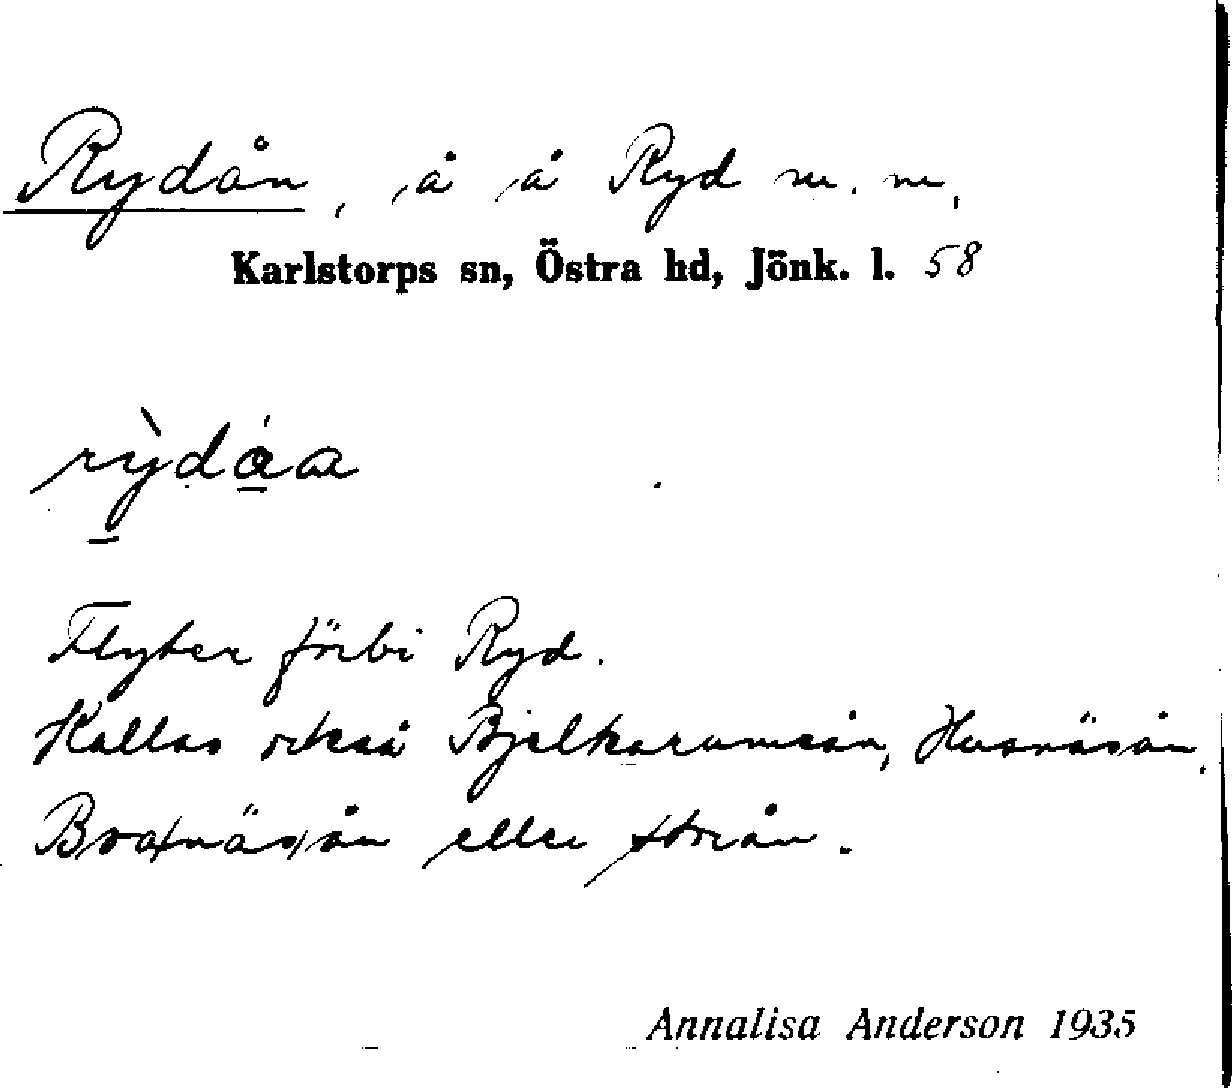 Rydån, å å Ryd m. m,
Karlstorps sn, Östra hd, Jönk. l. 58
rỳdȧa
Flyter förbi Ryd.
Kallas också Bjelkaramsån, Husnäsån,
Broxnäsån eller storån.
Annalisa Anderson 1935